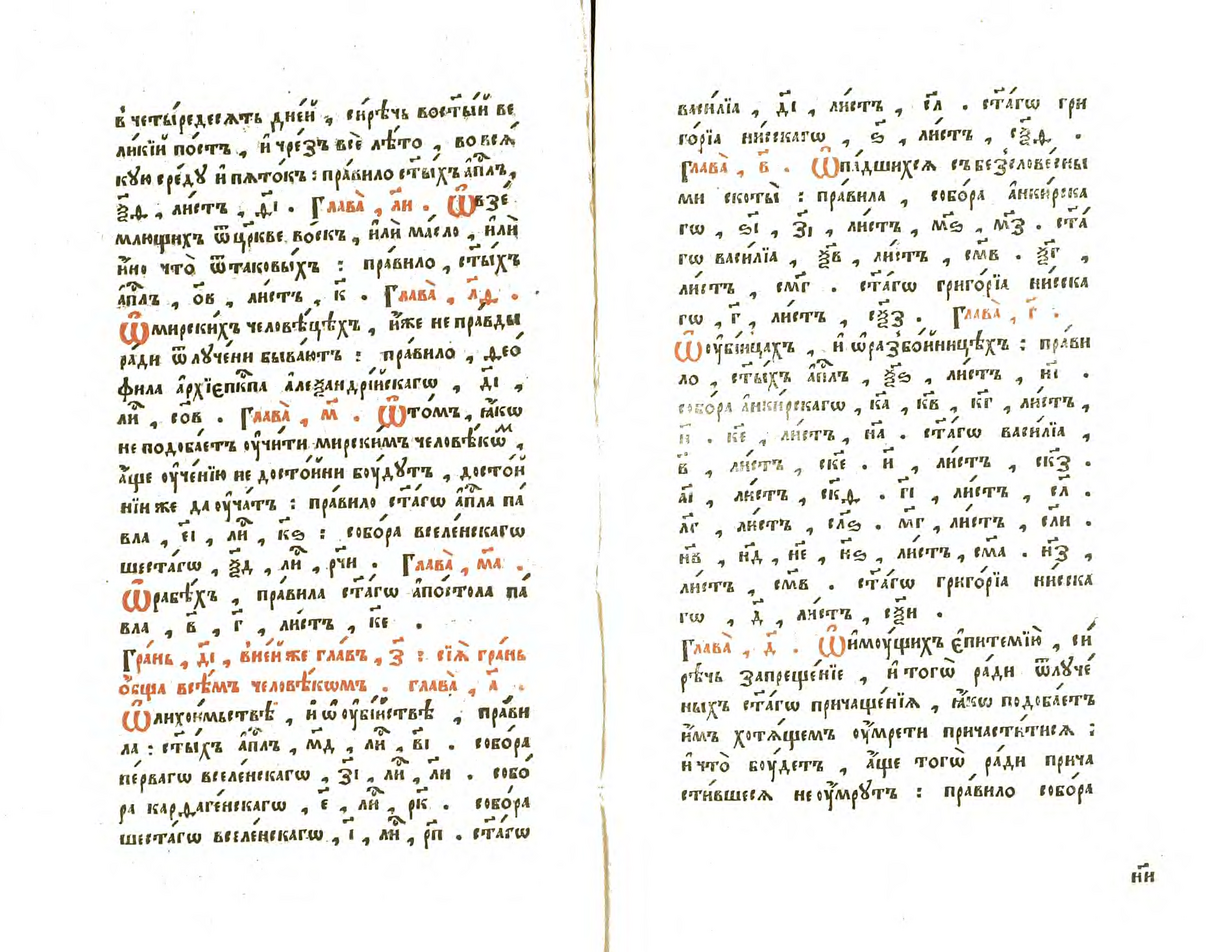 в҆ четы́редесѧть дне́й , си́рѣчь востⷭ҇ы́й ве
ли́кїй по́стъ , и҆ чрезъ всѐ лѣ́то , во всѧ́
кую сре́ду и҆ пѧто́къ : пра́вило ст҃ы́хъ а҆пⷭ҇лъ,
ѯ҃ѳ , ли́стъ , д҃і . Глава̀ , л҃и . Ѡ҆ взе́
млющихъ ѿ цр҃кве во́скъ , и҆лѝ ма́сло , и҆лѝ
и҆́но что̀ ѿ таковы́хъ : пра́вило , ст҃ы́хъ
а҆пⷭ҇лъ , о҃в , ли́стъ , к҃ . Глава̀ , л҃ѳ .
Ѡ҆ мирски́хъ человѣ́цѣхъ , и҆́же не пра́вды
ра́ди ѿлуче́ни быва́ютъ : пра́вило , ѳео́
фила а҆рхїепⷭ҇кпа а҆леѯандрі́йскагѡ , д҃і ,
лиⷭ҇ , со҃в . Глава̀ , м҃ . Ѡ҆ то́мъ , ꙗ҆́кѡ
не подоба́етъ оу҆чи́ти мирски́мъ человѣ́кѡⷨ ,
а҆́ще оу҆че́нїю не досто́йни бꙋ́дꙋтъ , досто́й
нїи же да оу҆ча́тъ : пра́вило ст҃а́гѡ а҆пⷭ҇ла па́
вла , є҃і , лиⷭ҇ , к҃ѕ : собо́ра вселе́нскагѡ
шеста́гѡ , ѯ҃д , лиⷭ҇ , рч҃и . Глава̀ , м҃а .
Ѡ҆ рабѣ́хъ , пра́вила ст҃а́гѡ а҆по́стола па́
вла , в҃ , г҃ , ли́стъ , к҃е .
Гра́нь , д҃і , в не́й же гла́въ , з҃ : сїѧ̀ гра́нь
о҆́бща всѣ́мъ человѣ́кѡмъ . глава̀ , а҃ .
Ѡ҆ лихои́мьствѣ , и҆ ѡ҆ оу҆бі́йствѣ , пра́ви
ла : ст҃ы́хъ а҆пⷭ҇лъ , м҃д , лиⷭ҇ , в҃і . собо́ра
пе́рвагѡ вселе́нскагѡ , з҃і , лиⷭ҇ , л҃и . собо́
ра карѳаге́нскагѡ , є҃ , лиⷭ҇ , р҃к . собо́ра
шеста́гѡ вселе́нскагѡ , і҃ , лиⷭ҇ , р҃п . ст҃а́гѡ
васи́лїа , д҃і , ли́стъ , с҃л . ст҃а́гѡ гри
го́рїа ни́сскагѡ , ѕ҃ , ли́стъ , сѯ҃ѳ .
Глава̀ , в҃ . Ѡ҆ па́дшихсѧ съ безслове́сны
ми скоты̀ : пра́вила , собо́ра а҆нки́рска
гѡ , ѕ҃і , з҃і , ли́стъ , м҃ѕ , м҃з . ст҃а́
гѡ васи́лїа , ѯ҃в , ли́стъ , см҃в . ѯ҃г ,
ли́стъ , см҃г . ст҃а́гѡ григо́рїа ни́сска
гѡ , г҃ , ли́стъ , сѯ҃з . Глава̀ , г҃ .
Ѡ҆ оу҆бі́йцахъ , и҆ ѡ҆ разбо́йницѣхъ : пра́ви
ло , ст҃ы́хъ а҆пⷭ҇лъ , ѯ҃ѕ , ли́стъ , н҃і .
собо́ра а҆нки́рскагѡ , к҃а , к҃в , к҃г , ли́стъ ,
н҃ . к҃е , ли́стъ , н҃а . ст҃а́гѡ васи́лїа ,
в҃ , ли́стъ , ск҃е . и҃ , ли́стъ , ск҃з .
а҃і , ли́стъ , ск҃ѳ . г҃і , ли́стъ , с҃л .
л҃г , ли́стъ , сл҃ѕ . м҃г , ли́стъ , сл҃и .
н҃в , н҃д , н҃е , н҃ѕ , ли́стъ , см҃а . н҃з ,
ли́стъ , см҃в . ст҃а́гѡ григо́рїа ни́сска
гѡ , д҃ , ли́стъ , сѯ҃и .
Глава̀ , д҃ . Ѡ҆ и҆мꙋ́щихъ є҆питемі́ю , си́
рѣчь запреще́нїе , и҆ тогѡ̀ ра́ди ѿлуче́
ныхъ ст҃а́гѡ причаще́нїѧ , ꙗ҆́кѡ подоба́етъ
и҆̀мъ хотѧ́щемъ оу҆мре́ти причасти́тисѧ :
и҆ что̀ бꙋ́детъ , а҆́ще тогѡ̀ ра́ди прича
сти́вшесѧ не оу҆́мрꙋтъ : пра́вило собо́ра
н҃и